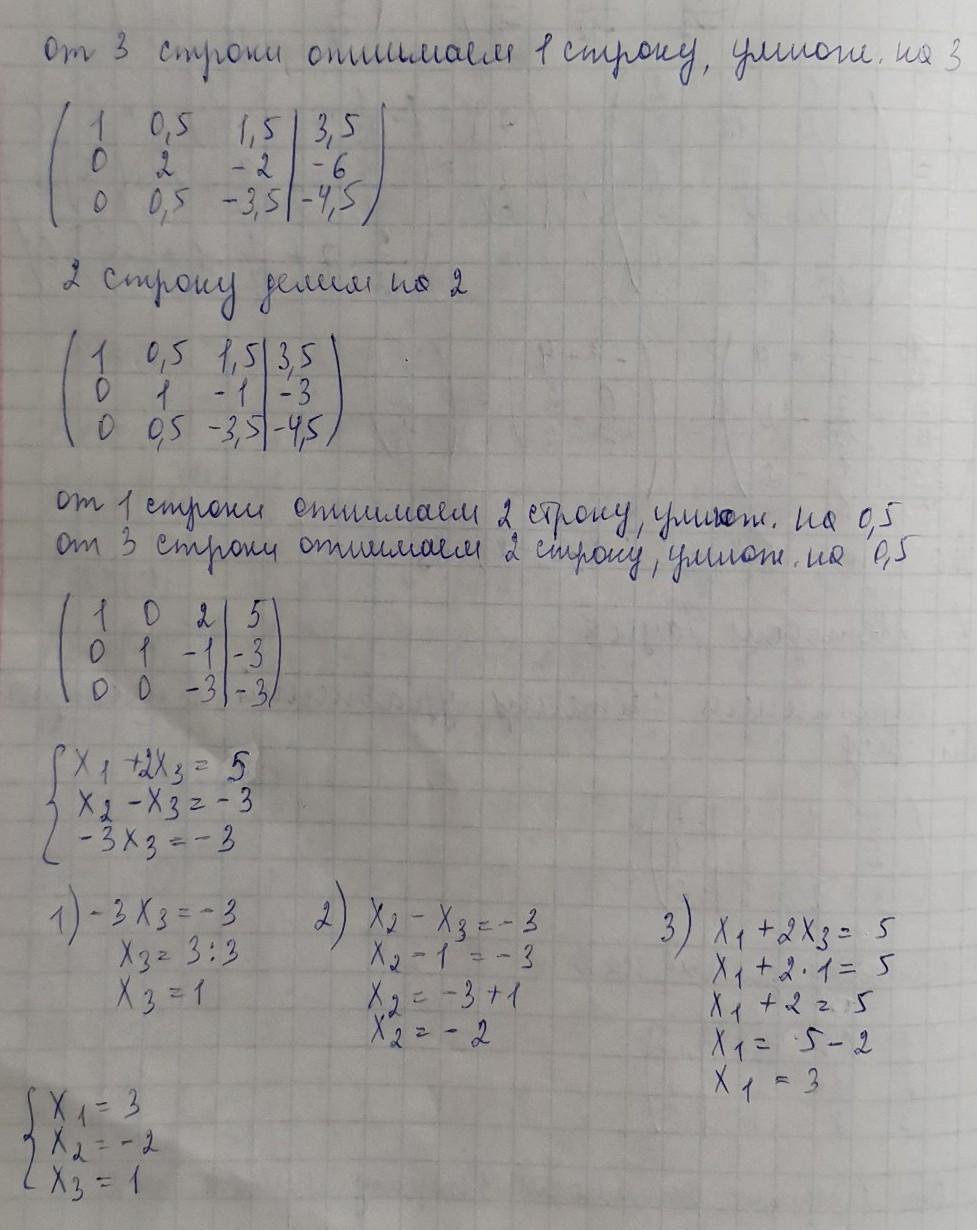 от 3 строки отнимаем 1 строку, умнож. на 3
1 0,5 1,5 | 3,5
0 2 -2 | -6
0 0,5 -3,5 | -4,5
2 строку делим на 2
1 0,5 1,5 | 3,5
0 1 -1 | -3
0 0,5 -3,5 | -4,5
от 1 строки отнимаем 2 строку, умнож. на 0,5
от 3 строки отнимаем 2 строку, умнож. на 0,5
1 0 2 | 5
0 1 -1 | -3
0 0 -3 | -3
x₁ + 2x₃ = 5
x₂ - x₃ = -3
-3x₃ = -3
1) -3x₃ = -3
x₃ = 3:3
x₃ = 1
2) x₂ - x₃ = -3
x₂ - 1 = -3
x₂ = -3 + 1
x₂ = -2
3) x₁ + 2x₃ = 5
x₁ + 2·1 = 5
x₁ + 2 = 5
x₁ = 5 - 2
x₁ = 3
x₁ = 3
x₂ = -2
x₃ = 1